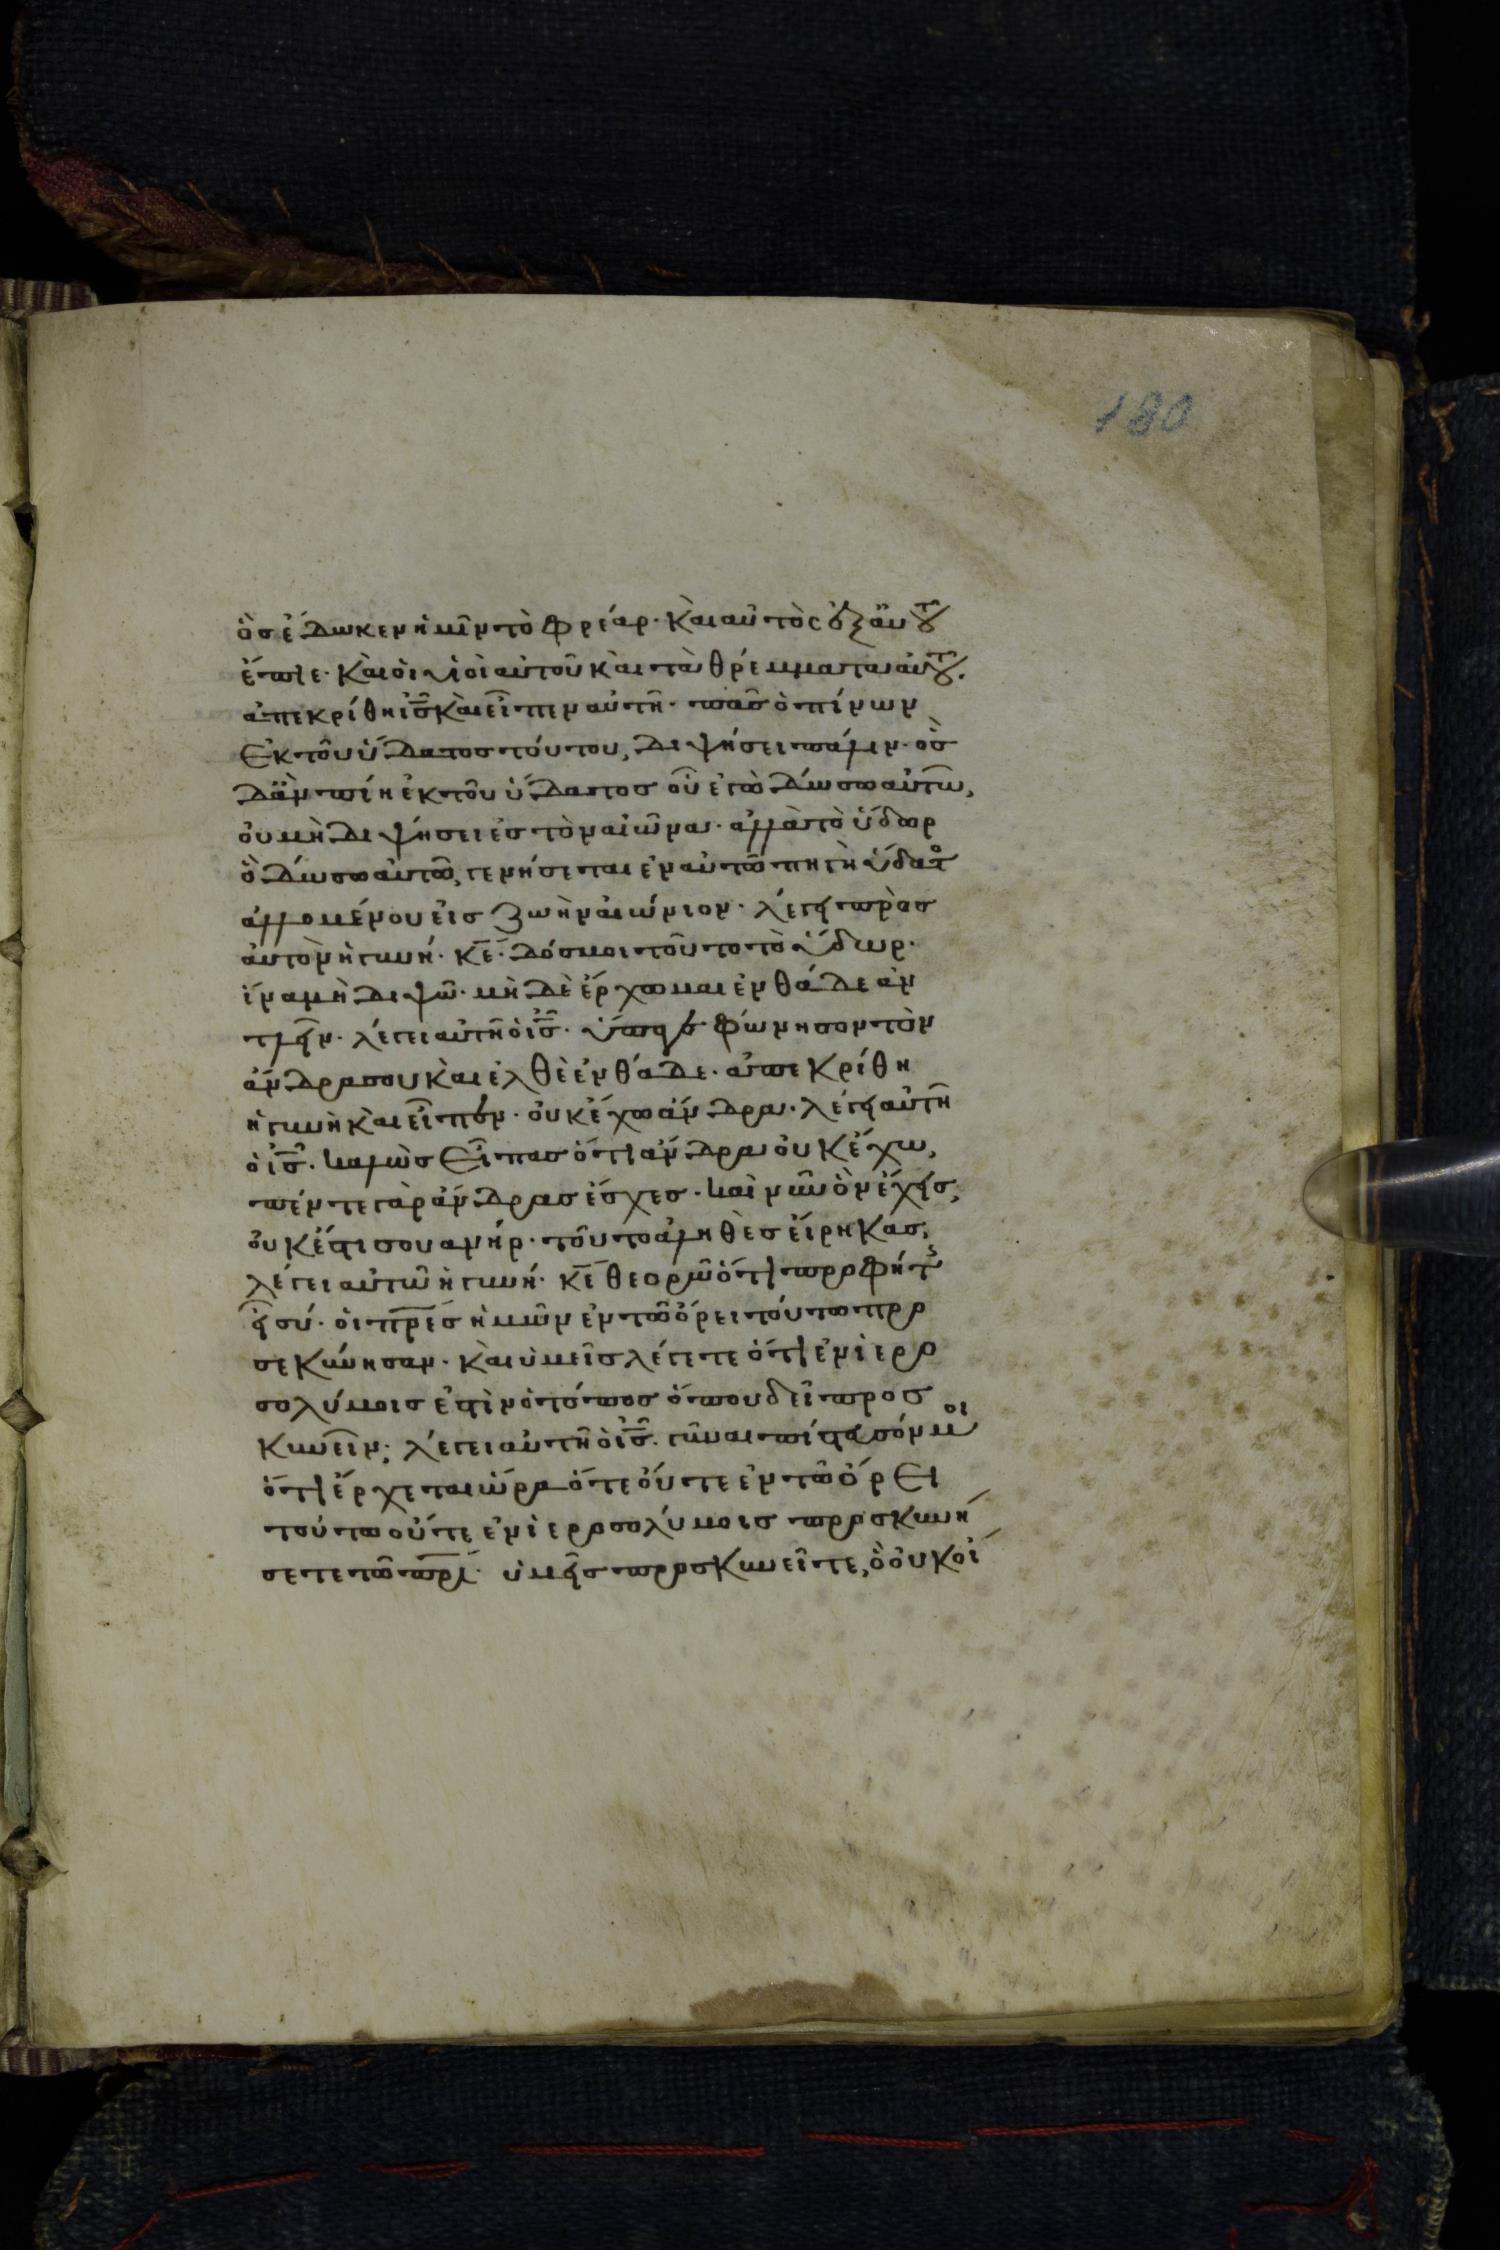 180
ὃσ ἔδωκεν ἡμῖν τὸ φρέαρ· καὶ αὐτὸς ἐξ αὐτοῦ
ἔπιε· καὶ οἱ υἱοὶ αὐτοῦ καὶ τὰ θρέμματα αὐτοῦ.
ἀπεκρίθη ἰς̅ καὶ εἶπεν αὐτῆ· πᾶσ ὁ πίνων
ἐκ τοῦ ὕδατος τούτου, διψήσει πάλιν· ὃσ
δἂν πίη ἐκ τοῦ ὕδατος οὗ ἐγὼ δώσω αὐτῶ,
οὐ μὴ διψήσει εἰσ τὸν αἰῶνα· ἀλλὰ τὸ ὕδωρ
ὃ δώσω αὐτῶ, γενήσεται ἐν αὐτῶ πηγὴ ὕδατος
ἀλλομένου εἰσ ζωὴν αἰώνιον· λέγει πρὸσ
αὐτὸν ἡ γυνή· κε̅· δόσ μοι τοῦτο τὸ ὕδωρ·
ἵνα μὴ διψῶ· μὴ δὲ ἔρχωμαι ἐνθάδε ἀν
τλεῖν· λέγει αὐτῆ ὁ ἰς̅· ὕπαγε φώνησον τὸν
ἄνδρα σου καὶ ἐλθὲ ἐνθάδε· ἀπεκρίθη
ἡ γυνὴ καὶ εἶπεν· οὐκ ἔχω ἄνδρα· λέγει αὐτῆ
ὁ ἰς̅· καλῶσ εἶπας ὅτι ἄνδρα οὐκ ἔχω,
πέντε γὰρ ἄνδρασ ἔσχεσ· καὶ νῦν ὃν ἔχεισ,
οὐκ ἔστι σου ἀνήρ· τοῦτο ἀληθὲσ εἴρηκασ,
λέγει αὐτῶ ἡ γυνή· κε̅ θεορῶ ὅτι προφήτης
εἶ σύ· οἱ πρε̅σ ἡμῶν ἐν τῶ ὄρει τούτω προ
σεκύνησαν· καὶ ὑμεῖσ λέγετε ὅτι ἐν ἱερο
σολύμοις ἐστὶν ὁ τόπος ὅπου δεῖ προσ
κυνεῖν; λέγει αὐτῆ ὁ ἰς̅· γῦναι πίστευσόν μοι
ὅτι ἔρχεται ὥρα ὅτε οὔτε ἐν τῶ ὄρει
τούτω οὔτε ἐν ἱεροσολύμοις προσκυνή
σετε τῶ πρι̅· ὑμεῖσ προσκυνεῖτε, ὃ οὐκ οἴ